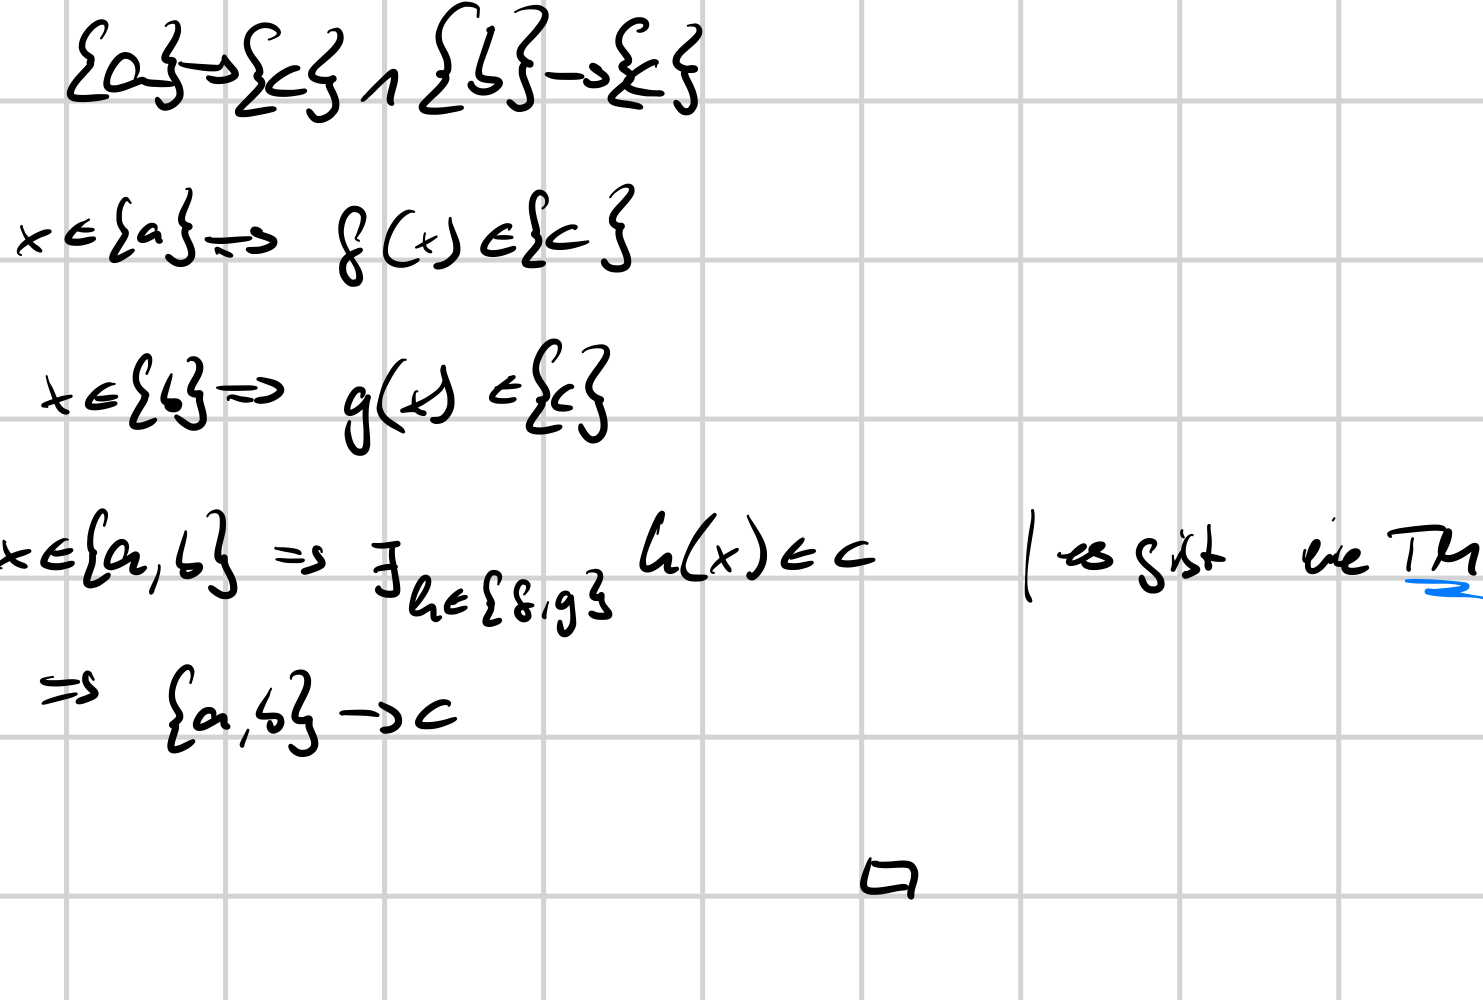 {a}→{c} ∧ {b}→{c}
x∈{a} ⇒ f(x) ∈{c}
x∈{b} ⇒ g(x) ∈{c}
x∈{a,b} ⇒ ∃h∈{f,g} h(x) ∈ c | es gibt eine TM
⇒ {a,b} → c
□